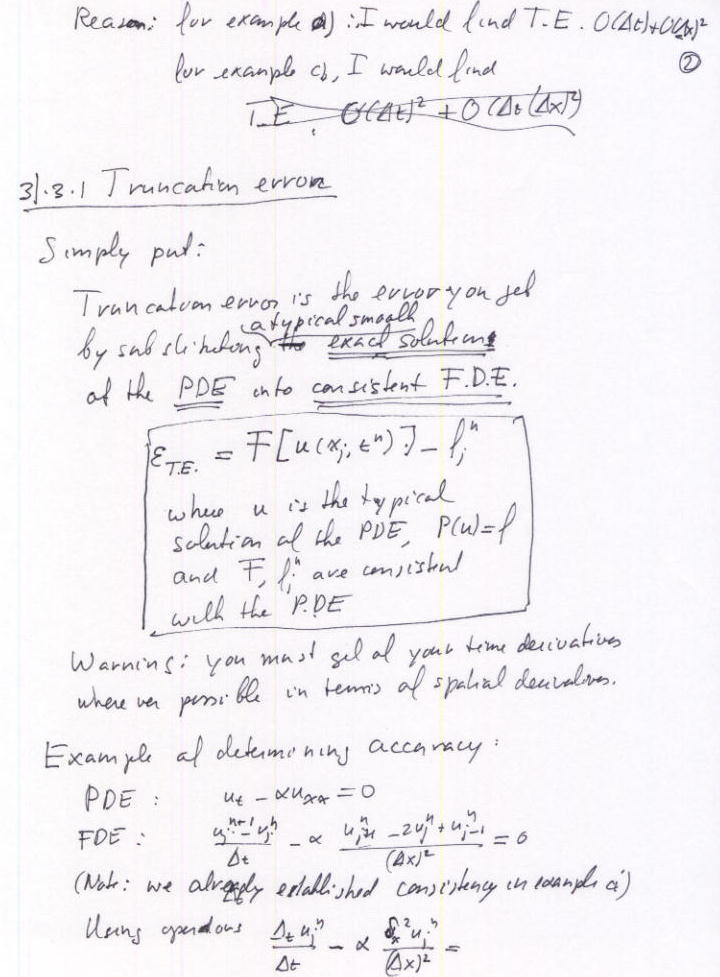 Reason: for example a) : I would find T.E. O(Δt)+O(Δx)²
②
for example c), I would find
T.E. O(Δt)² + O(Δt(Δx)²)
3).3.1 Truncation error
Simply put:
Truncation error is the error you get
a typical smooth
by substituting the exact solutions
of the PDE into consistent F.D.E.
ε_T.E. = F[u(x_j, t^n)] - f_j^n
where u is the typical
solution of the PDE, P(u)=f
and F, f_j^n are consistent
with the P.DE
Warning: you must get al your time derivatives
where ver possible in terms of spatial derivatives.
Example of determining accuracy:
PDE : u_t - αu_xx = 0
FDE : (u_j^{n+1} - u_j^n)/Δt - α (u_{j+1}^n - 2u_j^n + u_{j-1}^n)/(Δx)² = 0
(Note: we already established consistency in example a)
Using operators Δ_t u_j^n/Δt - α δ_x² u_j^n/(Δx)² =